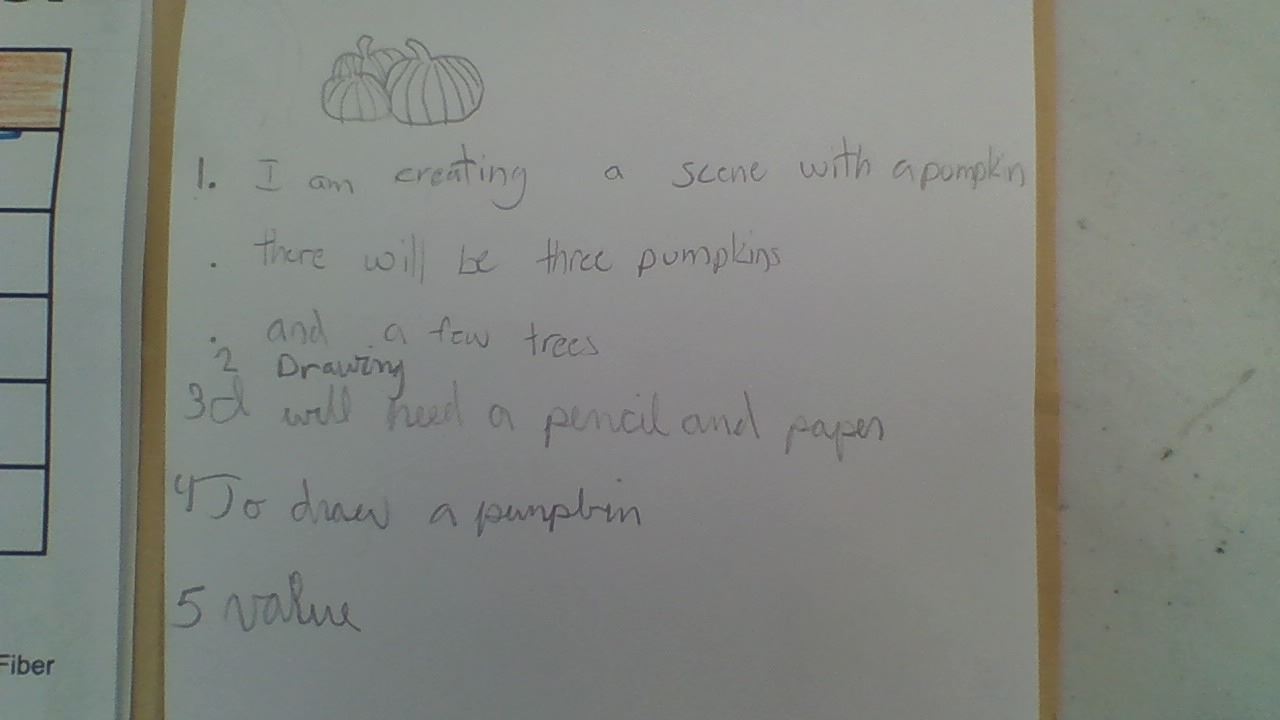 1. I am creating a scene with a pumpkin
. there will be three pumpkins
. and a few trees
2 Drawing
3 I will need a pencil and paper
4 To draw a pumpkin
5 value
Fiber